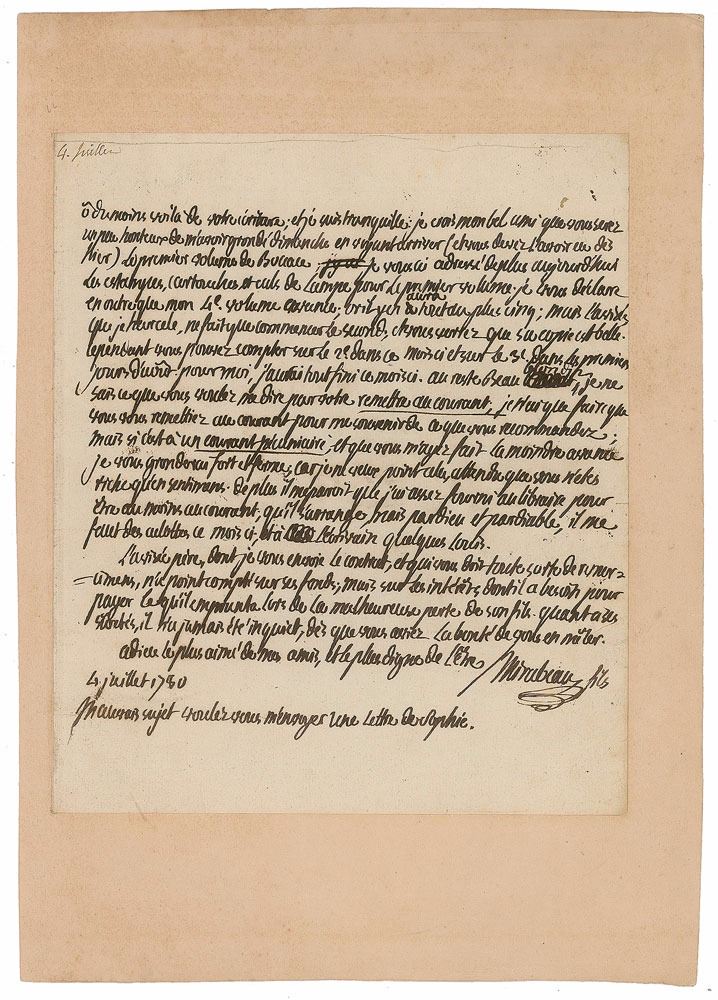 4. Juillet
ô du moins voilà de votre écriture; et je suis tranquille: je crois mon bel ami que vous serez
un peu honteux de m'avoir grondé dimanche en voyant arriver (et vous devez l'avoir eu dès
hier) le premier volume de Bocace je vous ai adressé de plus aujourd'hui
les estampes, cartouches et culs de lampe pour le premier volume. je vous déclare
en outre que mon 4e. volume avance; or il y en aura huit au plus cinq; mais
que je harcele, ne fait que commencer le second; et vous sentez que sa copie est belle.
cependant vous pouvez compter sur le 2e. dans ce mois ci et sur le 3e. dans les premiers
jours d'août. pour moi, j'aurai tout fini ce mois ci. au reste Beau je ne
sais ce que vous voulez me dire par votre remettre au courant, je n'ai que faire que
vous vous remettiez au courant pour me souvenir de ce que vous recommandez;
mais si c'est à un courant pécuniaire, et que vous m'ayez fait la moindre avance
je vous gronderai fort et ferme, car je ne veux point cela, attendu que vous n'êtes
riche qu'en sentimens. de plus il me paroit que j'ai assez fourni au libraire pour
être au moins au courant, qu'il s'arrange, mais pardieu et pardiable, il me
faut des culottes ce mois ci, et à l'écrivain quelques louis.
père, dont je vous envoie le contrat, et qui vous doit toute sorte de remer=
=cimens, n'a point compté sur ses fonds; mais sur les intérêts dont il a besoin pour
payer ce qu'il emprunta lors de la malheureuse perte de son fils. quant à ses
il n'a jamais été inquiet, dès que vous aviez la bonté de vous en mêler.
adieu le plus aimé de mes amis, et le plus digne de l'être Mirabeau fils
4 juillet 1780
Mauvais sujet voulez vous m'envoyer une lettre de Sophie.